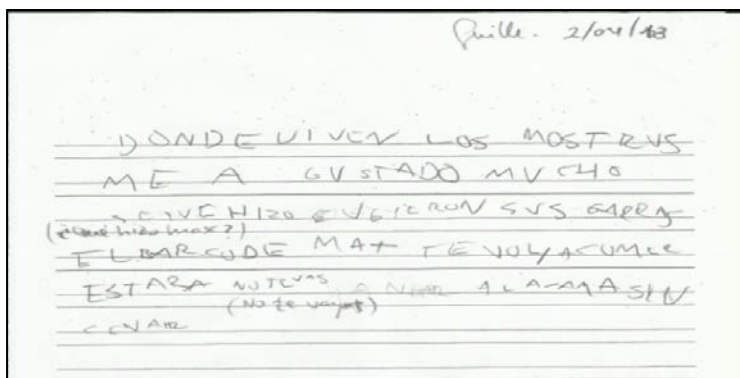 Guille. 2/04/13
DONDE VIVEN LOS MOSTRUS
ME A GUSTADO MUCHO
HIZO SUS GARRAS
(¿qué hizo max?)
EL BARCODE MAX TE VOLY ACUMER
ESTABA NOTEVAS A LA CAMA SIN
(No te vayas)
CENAR